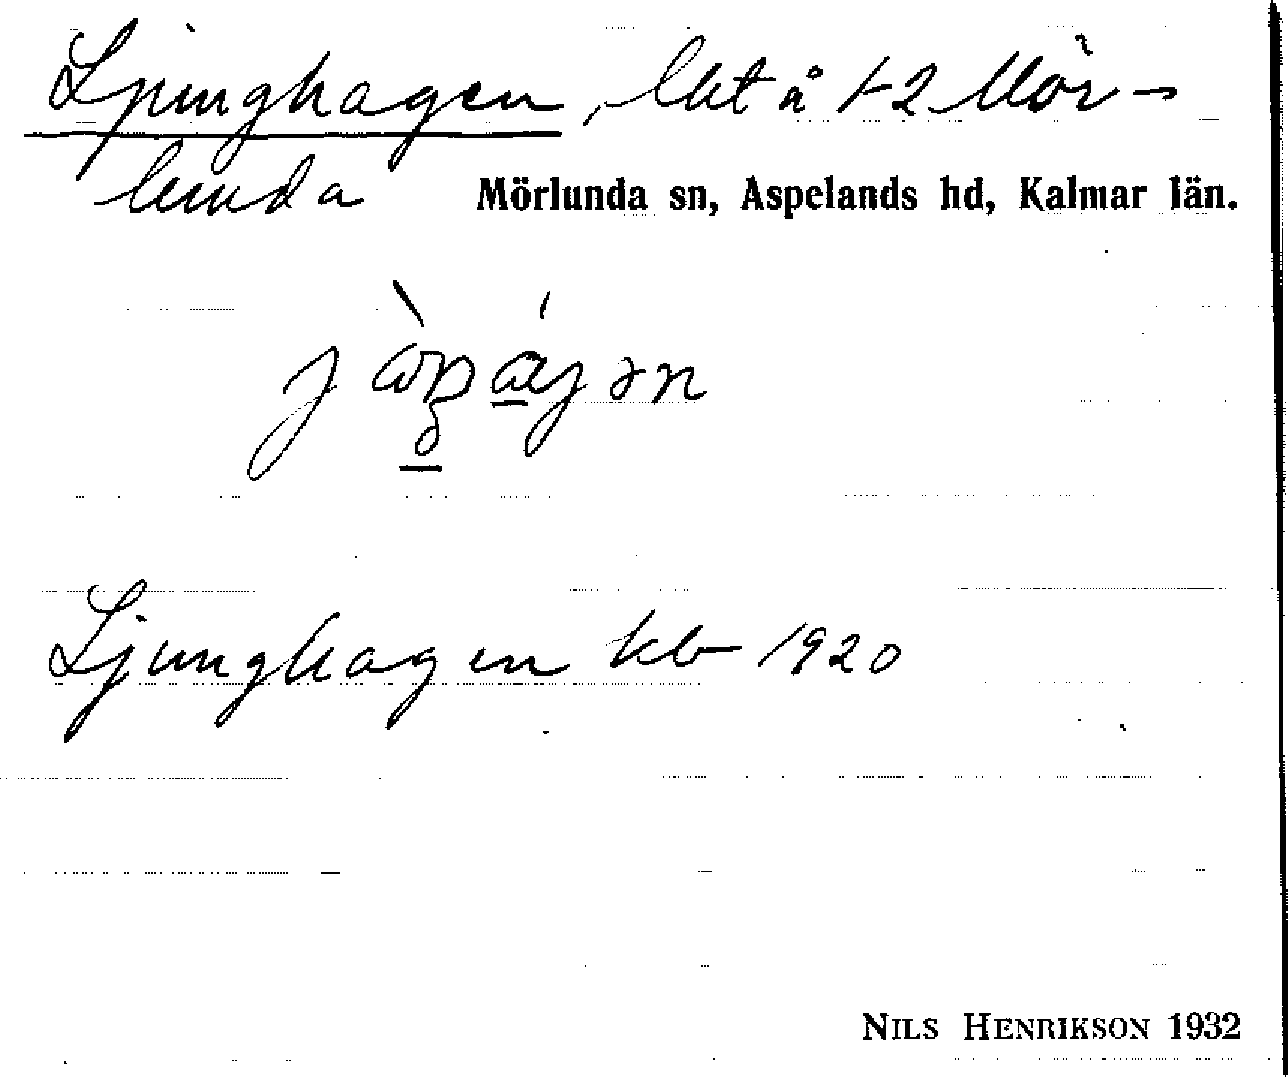 Ljunghagen, lht å 1-2 Mör-
lunda
Mörlunda sn, Aspelands hd, Kalmar län.
Ljunghagen kb 1920
NILS HENRIKSON 1932